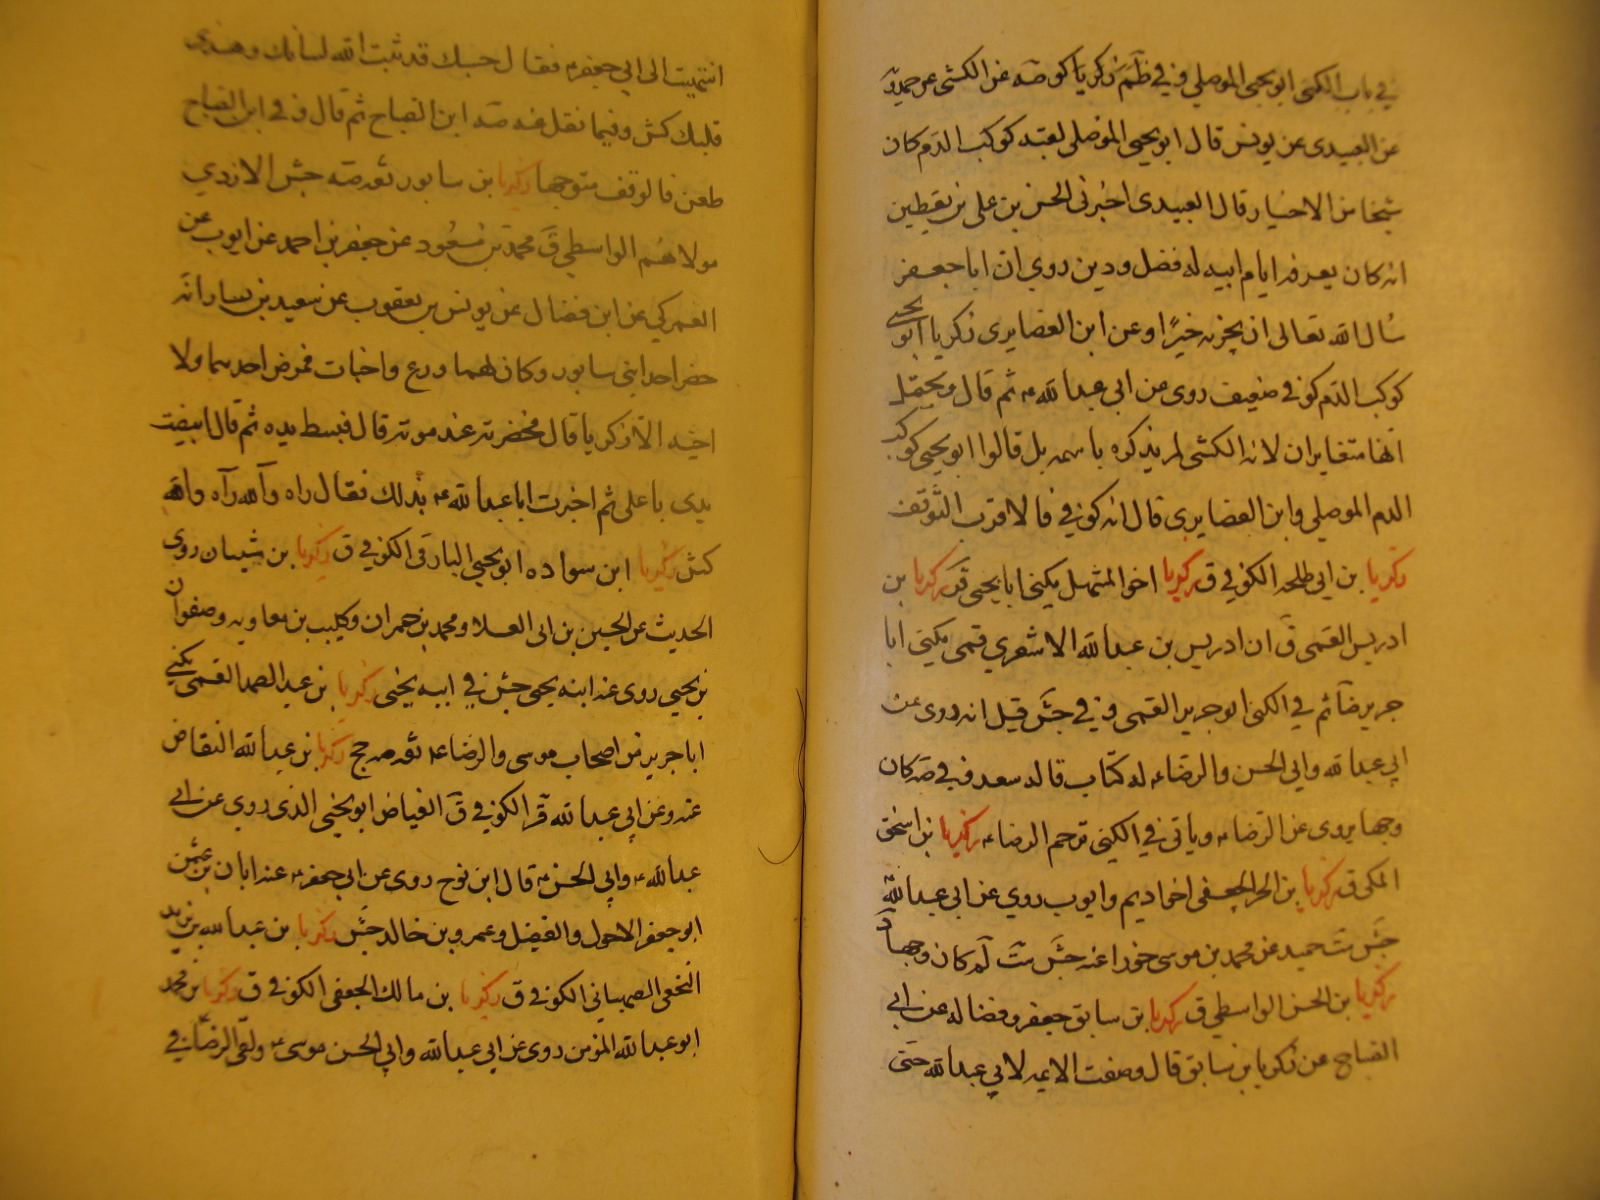 في باب الكنى ابو يحيى الموصلي وفي في ظم زكريا كو ضه عن الكشى عن حمدويه
عن العبيدى عن يونس قال ابو يحيى الموصلى لقبه كوكب الدم كان
شيخا من الاخيار قال العبيدى اخبرنى الحسن بن على بن يقطين
انه كان يعرفه ايام ابيه له فضل ودين روي ان ابا جعفر
سال الله تعالى ان يجزيه خيرا وعن ابن الغضايرى زكريا ابو يحيى
كوكب الدم كوفى ضعيف روى عن ابى عبدالله ع ثم قال ويحتمل
انهما متغايران لان الكشى لم يذكره باسمه بل قالوا ابو يحيى كوكب
الدم الموصلي وابن الغضايرى قال انه كوفي فالاقرب التوقف
زكريا بن ابى طلحه الكوفي ق زكريا اخو المشمعل يكنى ابا يحيى ق زكريا بن
ادريس القمى ق ان ادريس بن عبدالله الاشعري قمى يكنى ابا
جرير ضا ثم في الكنى ابو جرير القمى وفي جش قيل انه روى عن
ابي عبدالله وابي الحسن والرضا ع له كتاب قاله سعد وفي صه كان
وجها يروى عن الرضا ع وياتى في الكنى ترحم الرضا ع زكريا بن اسحق
المكى ق زكريا بن الحر الجعفى اخو اديم وايوب روي عن ابى عبدالله
جش ست حميد عن محمد بن موسى خوراء عنه جش ست لم كان وجها د
زكريا بن الحسن الواسطي ق زكريا بن سابق جعفر وفضاله عن ابي
الصباح عن زكريا بن سابق قال وصفت الايمه لابي عبدالله حتى
انتهيت الى ابي جعفر ع فقال حسبك قد ثبت الله لسانك وهدى
قلبك كش وفيما نقل عنه صه ابن الصباح ثم قال وفي ابن الصباح
طعن فالوقف متوجها زكريا بن سابور ثقه صه جش الازدي
مولاهم الواسطي ق محمد بن مسعود عن جعفر بن احمد عن ايوب عن
العمركي عن ابن فضال عن يونس بن يعقوب عن سعيد بن يسار انه
حضر احد ابني سابور وكان لهما ورع واخبات فمرض احدهما ولا
احسبه الا زكريا قال فحضرته عند موته قال فبسط يده ثم قال ابيضت
يدى يا على ثم اخبرت ابا عبدالله ع بذلك فقال راه والله رآه والله
كش زكريا ابن سواده ابو يحيى البارقى الكوفي ق زكريا بن شيبان روى
الحديث عن الحسين بن ابى العلا ومحمد بن حمران وكليب بن معاويه وصفوان
بن يحيى روى عنه ابنه يحيى جش في ابيه يحيى زكريا بن عبد الصمد القمى يكنى
ابا جرير من اصحاب موسى والرضا ع ثقه صه جخ زكريا بن عبدالله النقاض
عنه وعن ابي عبدالله قر الكوفي ق الفياض ابو يحيى الذى روي عن ابي
عبدالله ع وابي الحسن ع قال ابن نوح روى عن ابي جعفر ع عنه ابان بن عثمن
ابو جعفر الاحول والفضيل وعمرو بن خالد جش زكريا بن عبدالله بن يزيد
النخعى الصهبانى الكوفي ق زكريا بن مالك الجعفى الكوفي ق زكريا بن محمد
ابو عبدالله المؤمن روى عن ابى عبدالله وابي الحسن موسى ع ولقى الرضا في